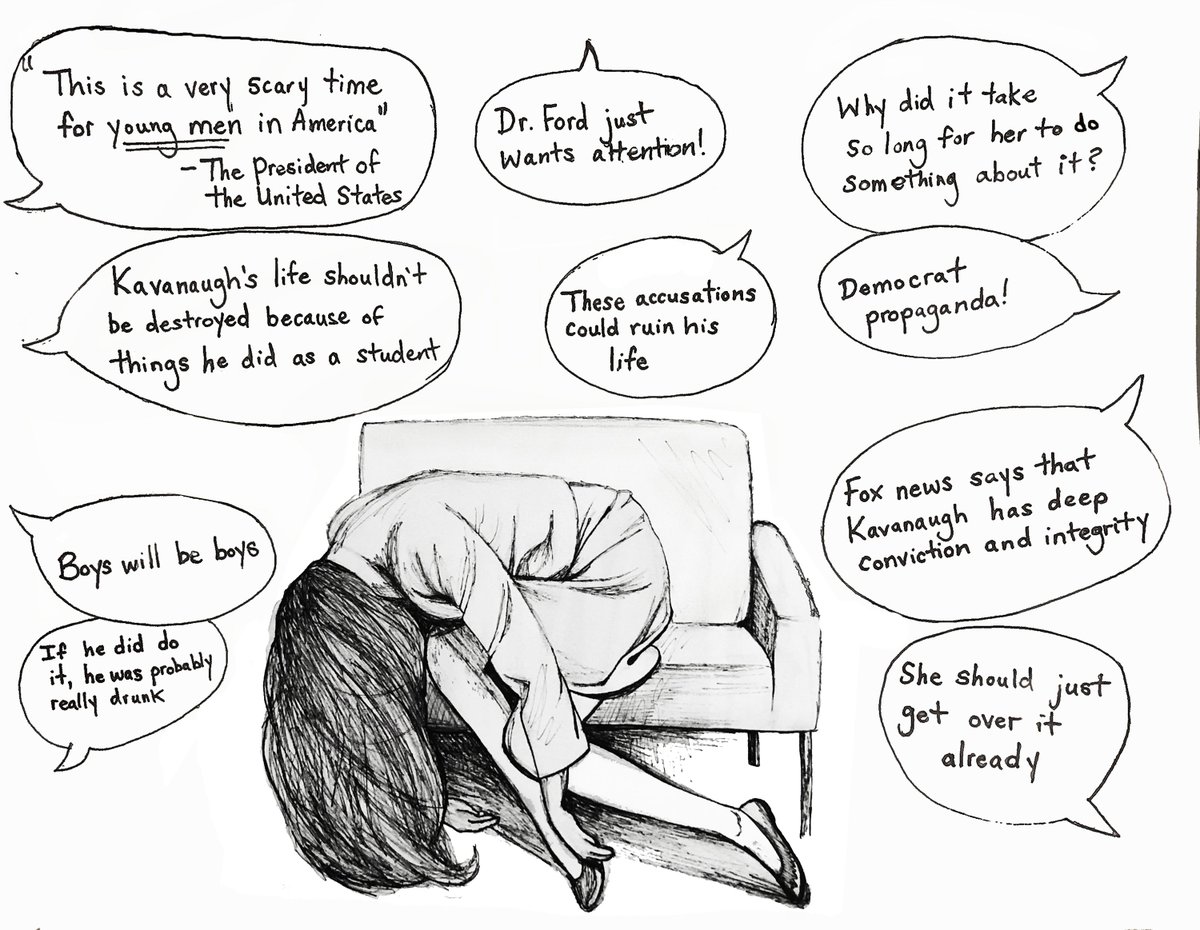 "This is a very scary time
for young men in America"
- The President of
the United States
Dr. Ford just
wants attention!
Why did it take
so long for her to do
something about it?
Kavanaugh's life shouldn't
be destroyed because of
things he did as a student
These accusations
could ruin his
life
Democrat
propaganda!
Fox news says that
Kavanaugh has deep
conviction and integrity
Boys will be boys
If he did do
it, he was probably
really drunk
She should just
get over it
already